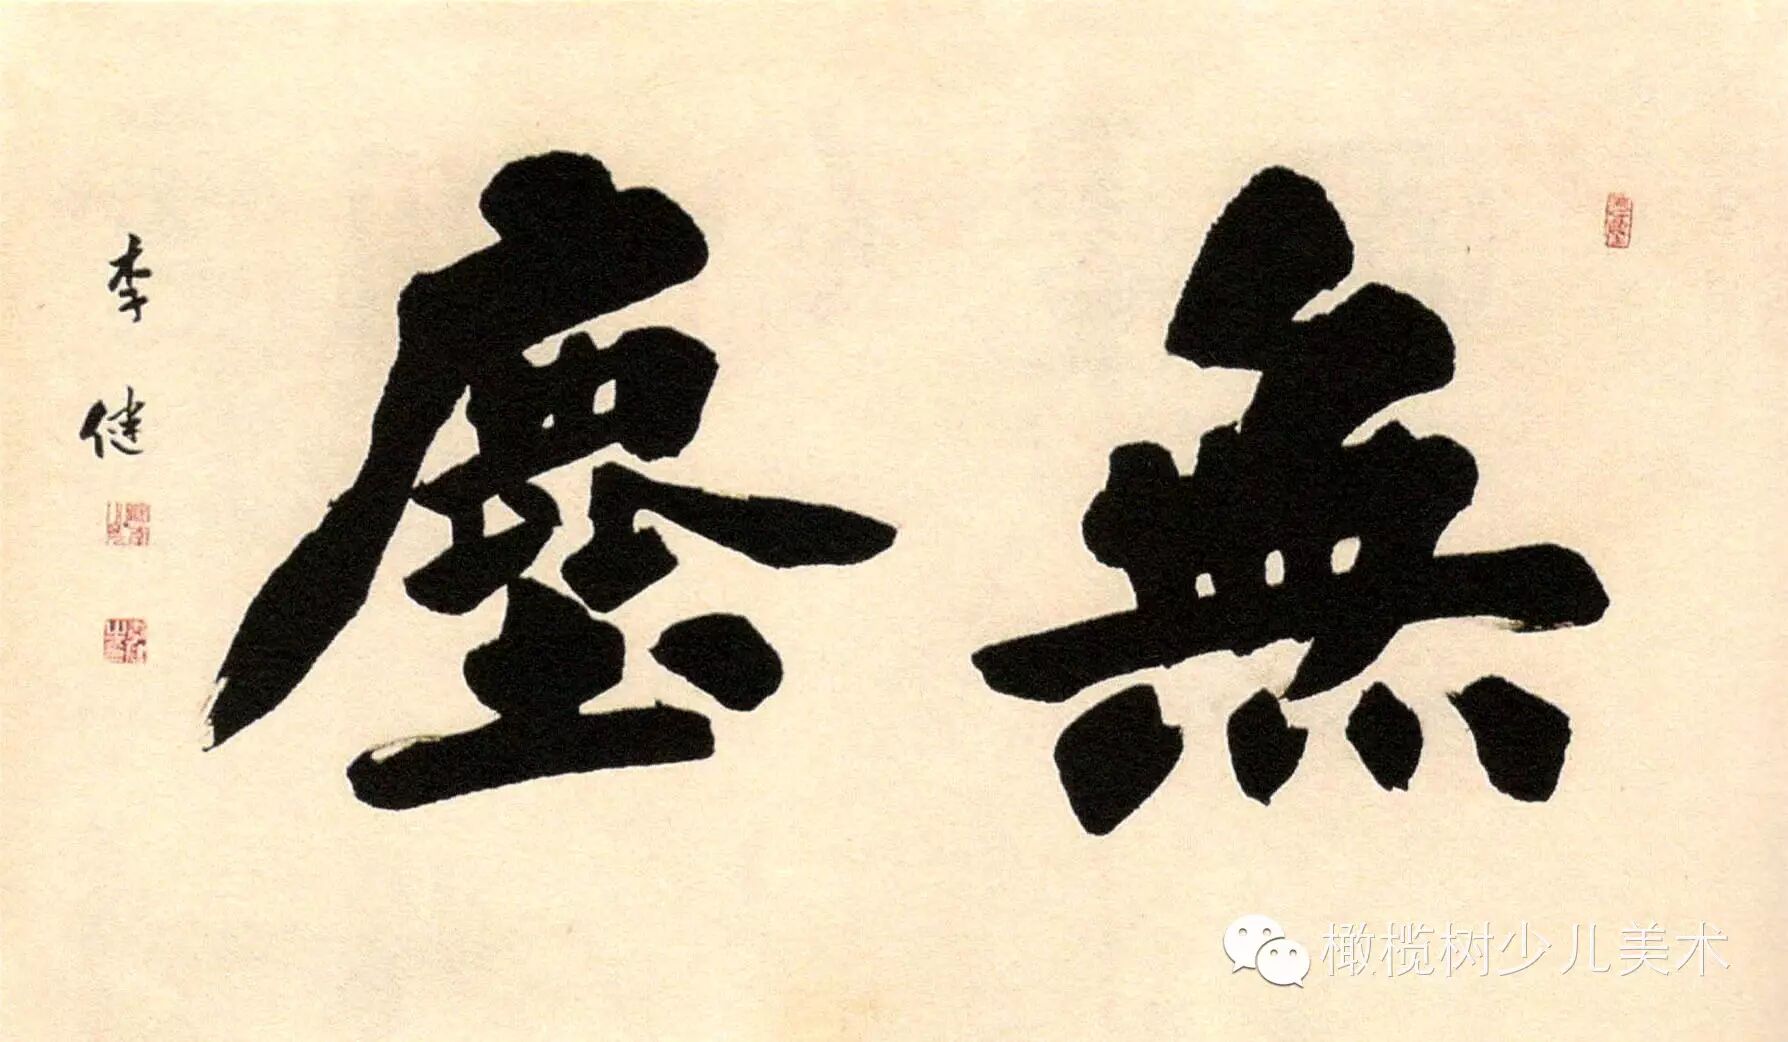 無塵
李健
橄榄树少儿美术